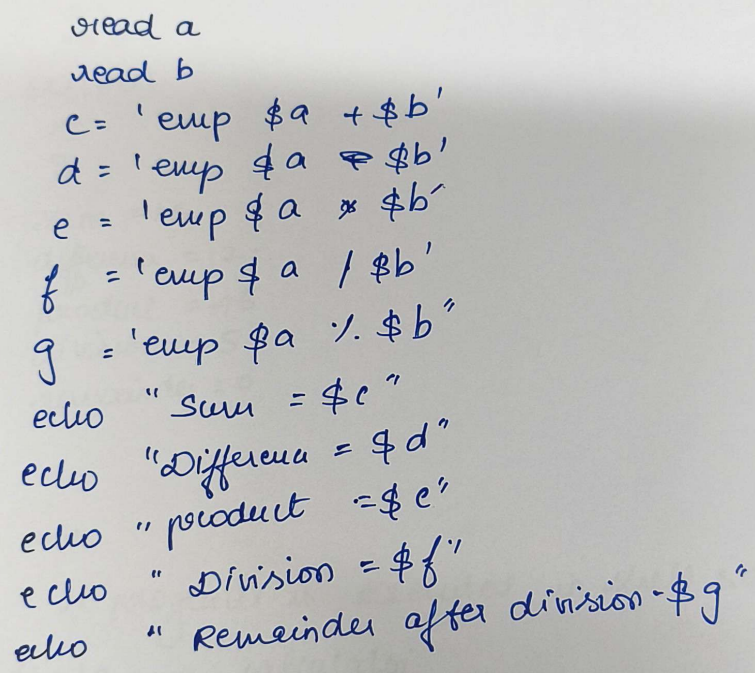 read a
read b
c = 'exp $a + $b'
d = 'exp $a - $b'
e = 'exp $a * $b'
f = 'exp $a / $b'
g = 'exp $a % $b"
echo "Sum = $c"
echo "Difference = $d"
echo "product = $e"
echo "Division = $f"
echo "Remainder after division - $g"